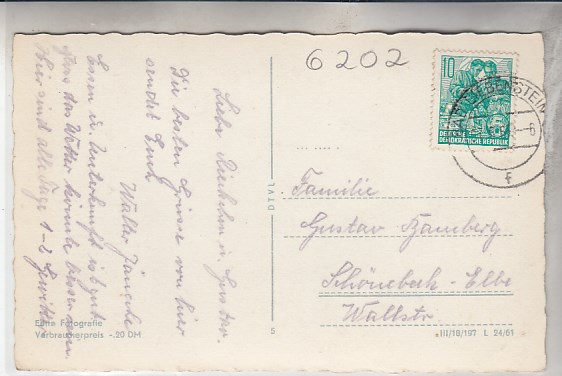 6202
10
DEUTSCHE
DEMOKRATISCHE REPUBLIK
LIEBENSTEIN
f
Liebe Riekchen u. Gustav.
Die besten Grüsse von hier
sendet Euch
Walter Jänicke
Essen u. Unterkunft ist gut
das Wetter könnte besser sein
Hier sind alle Tage 1-2 Gewitter
Echte Fotografie
Verbraucherpreis -.20 DM
DTVL
5
Familie
Gustav Bamberg.
Schönebeck-Elbe
Wallstr.
III/18/197 L 24/61